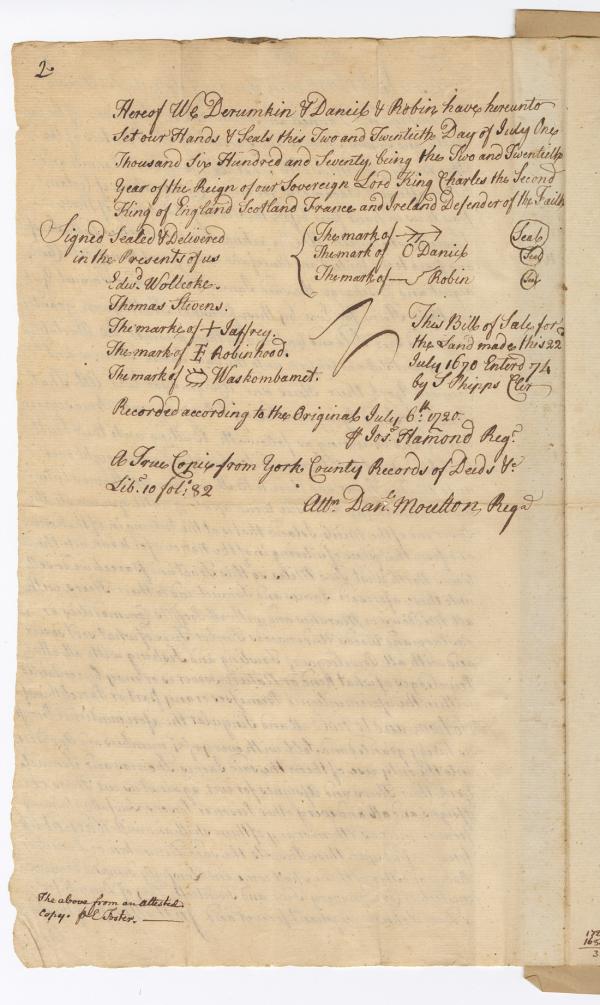 2
Hereof We Derumkin & Daniel & Robin have hereunto
set our Hands & Seals this Two and Twentieth Day of July One
Thousand Six Hundred and Seventy, being the Two and Twentieth
Year of the Reign of our Sovereign Lord King Charles the Second
King of England Scotland France and Ireland Defender of the Faith
Signed Sealed & Delivered
in the Presents of us
Edwd Wollcoke.
Thomas Stevens.
The marke of + Jaffrey.
The mark of Robinhood.
The mark of Waskombamet.
The mark of Seal
The mark of Daniel Seal
The mark of Robin Seal
This Bill of Sale for
the Land made this 22
July 1670 Enterd 74
by S Phipps Cler
Recorded according to the Original July 6th 1720.
Jos. Hamond Regr
A True Copie from York County Records of Deeds &c
Libr 10 fol: 82
Attr Danl Moulton, Regr
The above from an attested
copy. E Foster.
172
165
3